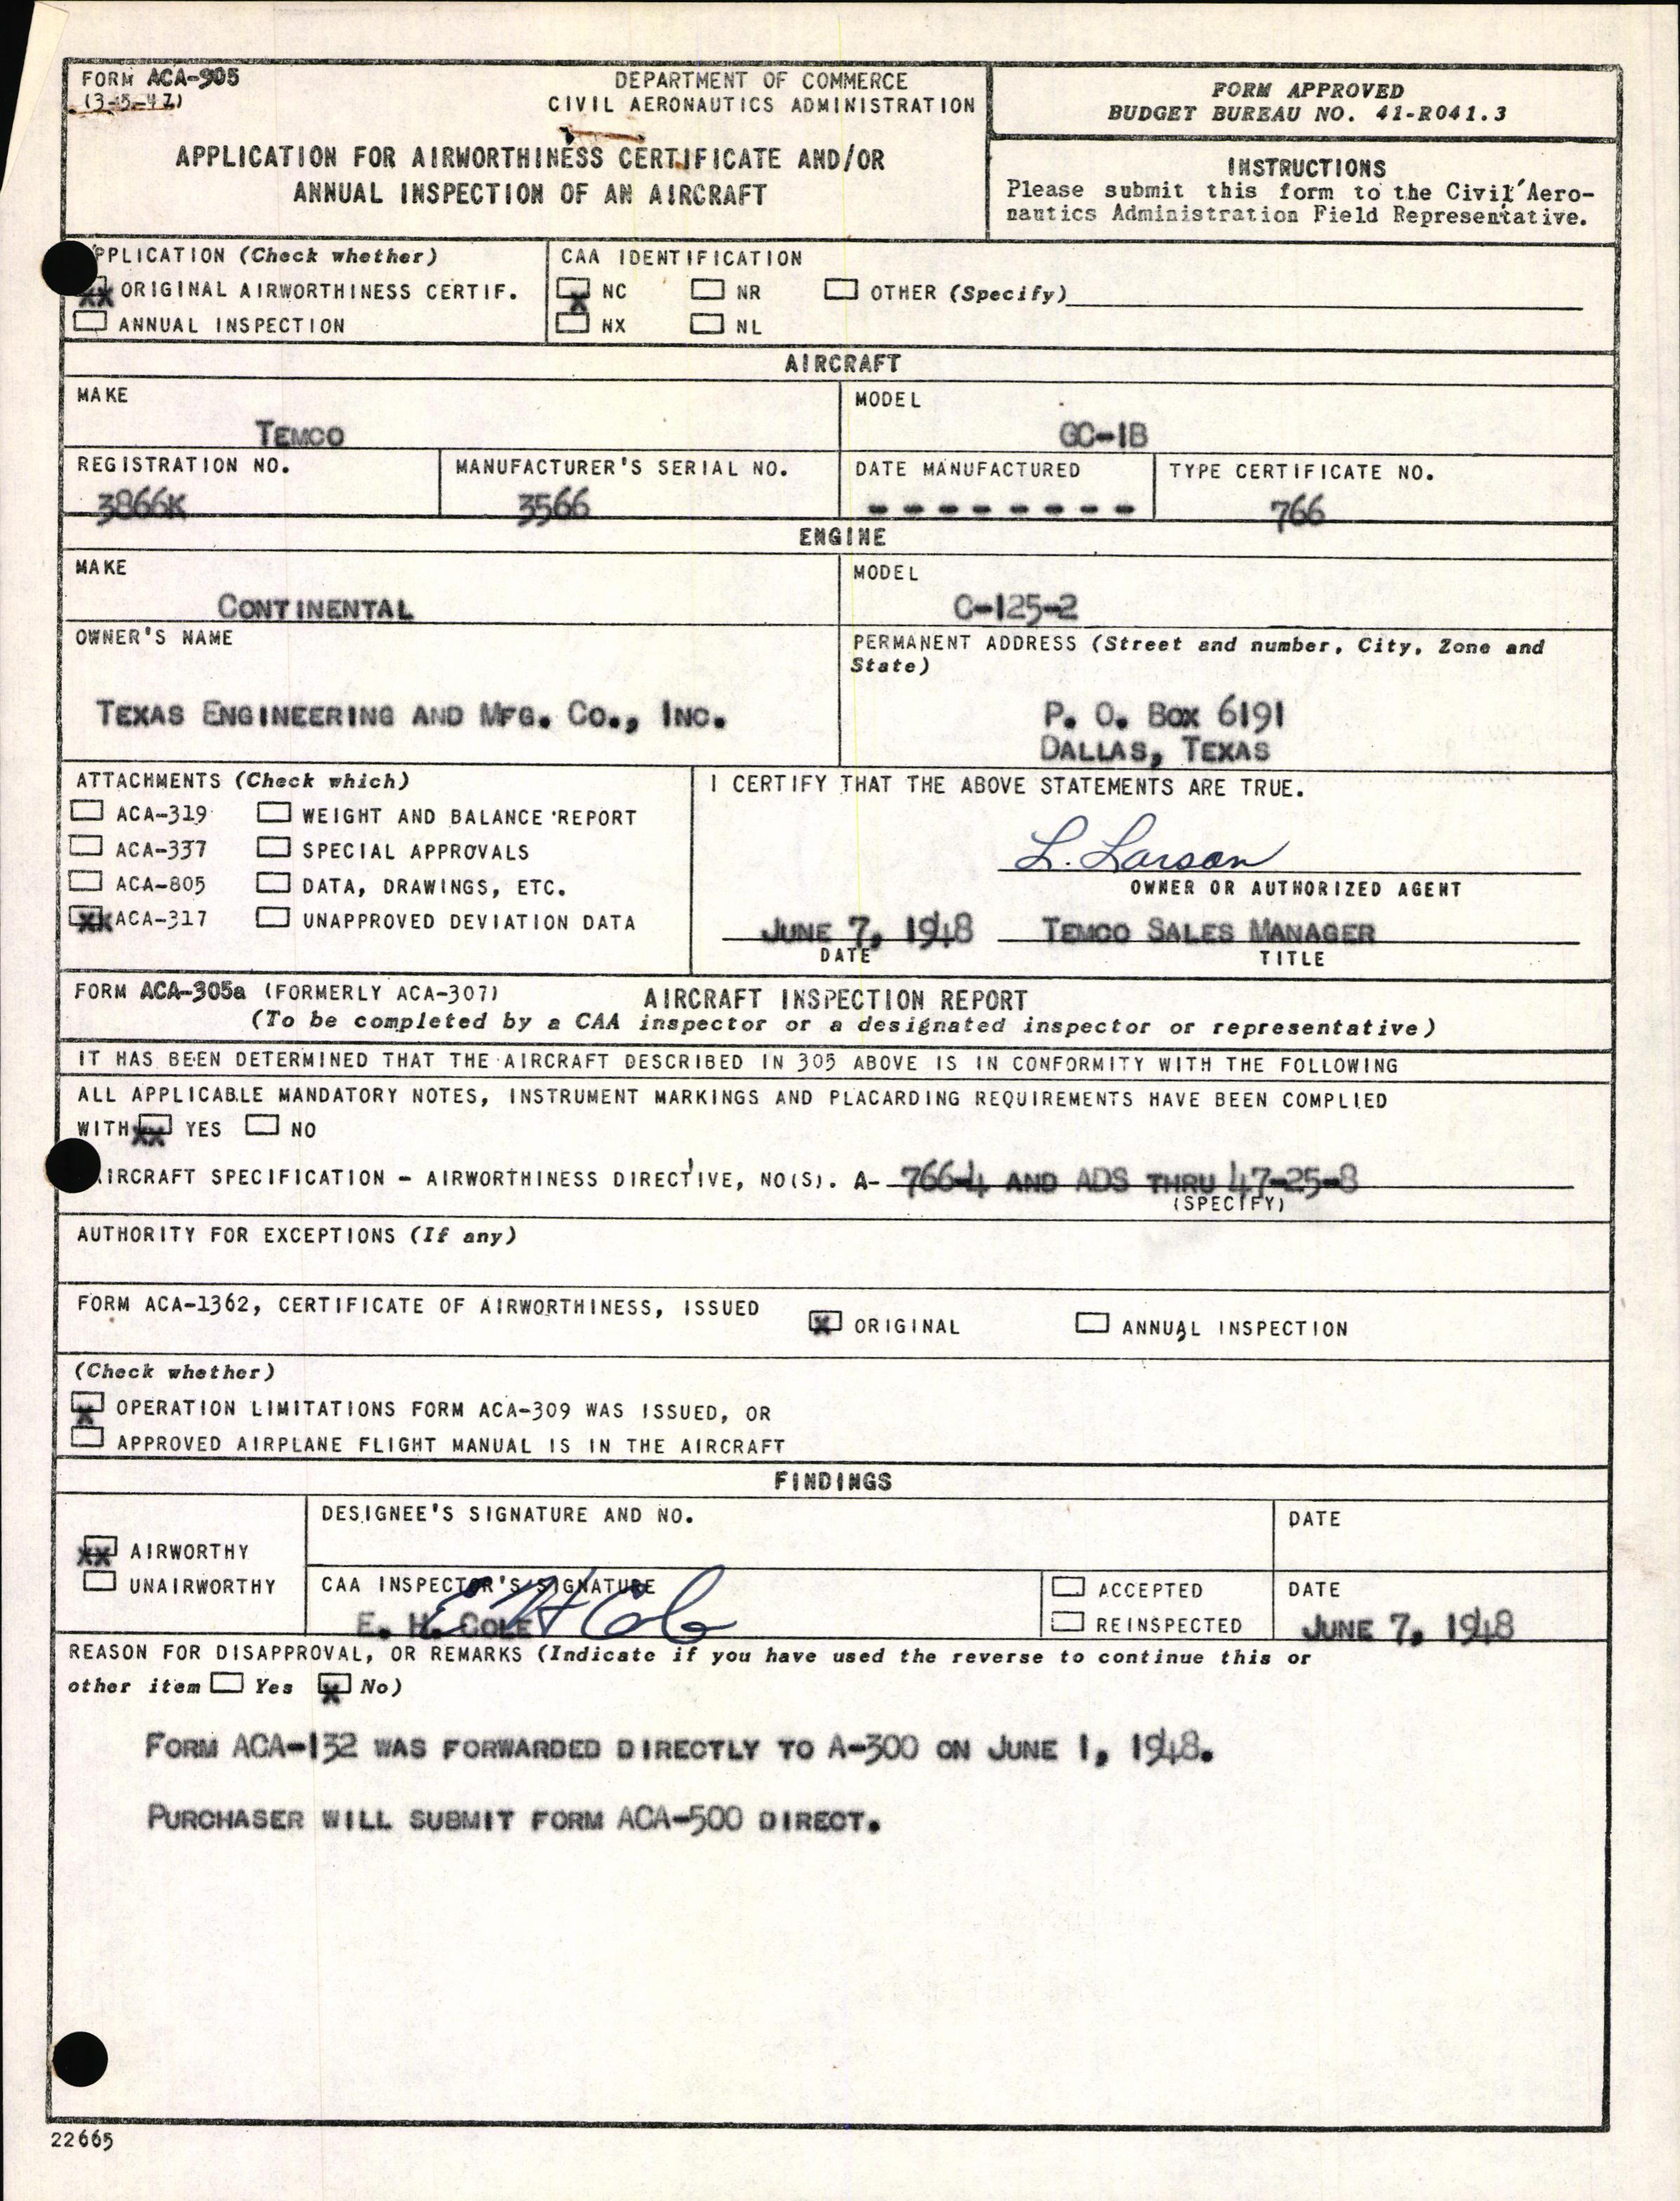 FORM ACA-905
(3-5-47)
DEPARTMENT OF COMMERCE
CIVIL AERONAUTICS ADMINISTRATION
APPLICATION FOR AIRWORTHINESS CERTIFICATE AND/OR
ANNUAL INSPECTION OF AN AIRCRAFT
FORM APPROVED
BUDGET BUREAU NO. 41-R041.3
INSTRUCTIONS
Please submit this form to the Civil Aero-
nautics Administration Field Representative.
PPLICATION (Check whether)
XX ORIGINAL AIRWORTHINESS CERTIF.
ANNUAL INSPECTION
CAA IDENTIFICATION
X NC NR OTHER (Specify)
NX NL
AIRCRAFT
MAKE
TEMCO
MODEL
GC-1B
REGISTRATION NO.
3866K
MANUFACTURER'S SERIAL NO.
3566
DATE MANUFACTURED
- - - - - - - -
TYPE CERTIFICATE NO.
766
ENGINE
MAKE
CONTINENTAL
MODEL
C-125-2
OWNER'S NAME
TEXAS ENGINEERING AND MFG. CO., INC.
PERMANENT ADDRESS (Street and number, City, Zone and
State)
P. O. BOX 6191
DALLAS, TEXAS
ATTACHMENTS (Check which)
ACA-319 WEIGHT AND BALANCE REPORT
ACA-337 SPECIAL APPROVALS
ACA-805 DATA, DRAWINGS, ETC.
XX ACA-317 UNAPPROVED DEVIATION DATA
I CERTIFY THAT THE ABOVE STATEMENTS ARE TRUE.
L. Larson
OWNER OR AUTHORIZED AGENT
JUNE 7, 1948 TEMCO SALES MANAGER
DATE TITLE
FORM ACA-305a (FORMERLY ACA-307) AIRCRAFT INSPECTION REPORT
(To be completed by a CAA inspector or a designated inspector or representative)
IT HAS BEEN DETERMINED THAT THE AIRCRAFT DESCRIBED IN 305 ABOVE IS IN CONFORMITY WITH THE FOLLOWING
ALL APPLICABLE MANDATORY NOTES, INSTRUMENT MARKINGS AND PLACARDING REQUIREMENTS HAVE BEEN COMPLIED
WITH XX YES NO
IRCRAFT SPECIFICATION - AIRWORTHINESS DIRECTIVE, NO(S). A- 766-4 AND ADS THRU 47-25-8
(SPECIFY)
AUTHORITY FOR EXCEPTIONS (If any)
FORM ACA-1362, CERTIFICATE OF AIRWORTHINESS, ISSUED
X ORIGINAL ANNUAL INSPECTION
(Check whether)
X OPERATION LIMITATIONS FORM ACA-309 WAS ISSUED, OR
APPROVED AIRPLANE FLIGHT MANUAL IS IN THE AIRCRAFT
FINDINGS
XX AIRWORTHY
UNAIRWORTHY
DESIGNEE'S SIGNATURE AND NO.
DATE
CAA INSPECTOR'S SIGNATURE
E. H. COLE E H Cole
ACCEPTED
REINSPECTED
DATE
JUNE 7, 1948
REASON FOR DISAPPROVAL, OR REMARKS (Indicate if you have used the reverse to continue this or
other item Yes X No)
FORM ACA-132 WAS FORWARDED DIRECTLY TO A-300 ON JUNE 1, 1948.
PURCHASER WILL SUBMIT FORM ACA-500 DIRECT.
22665